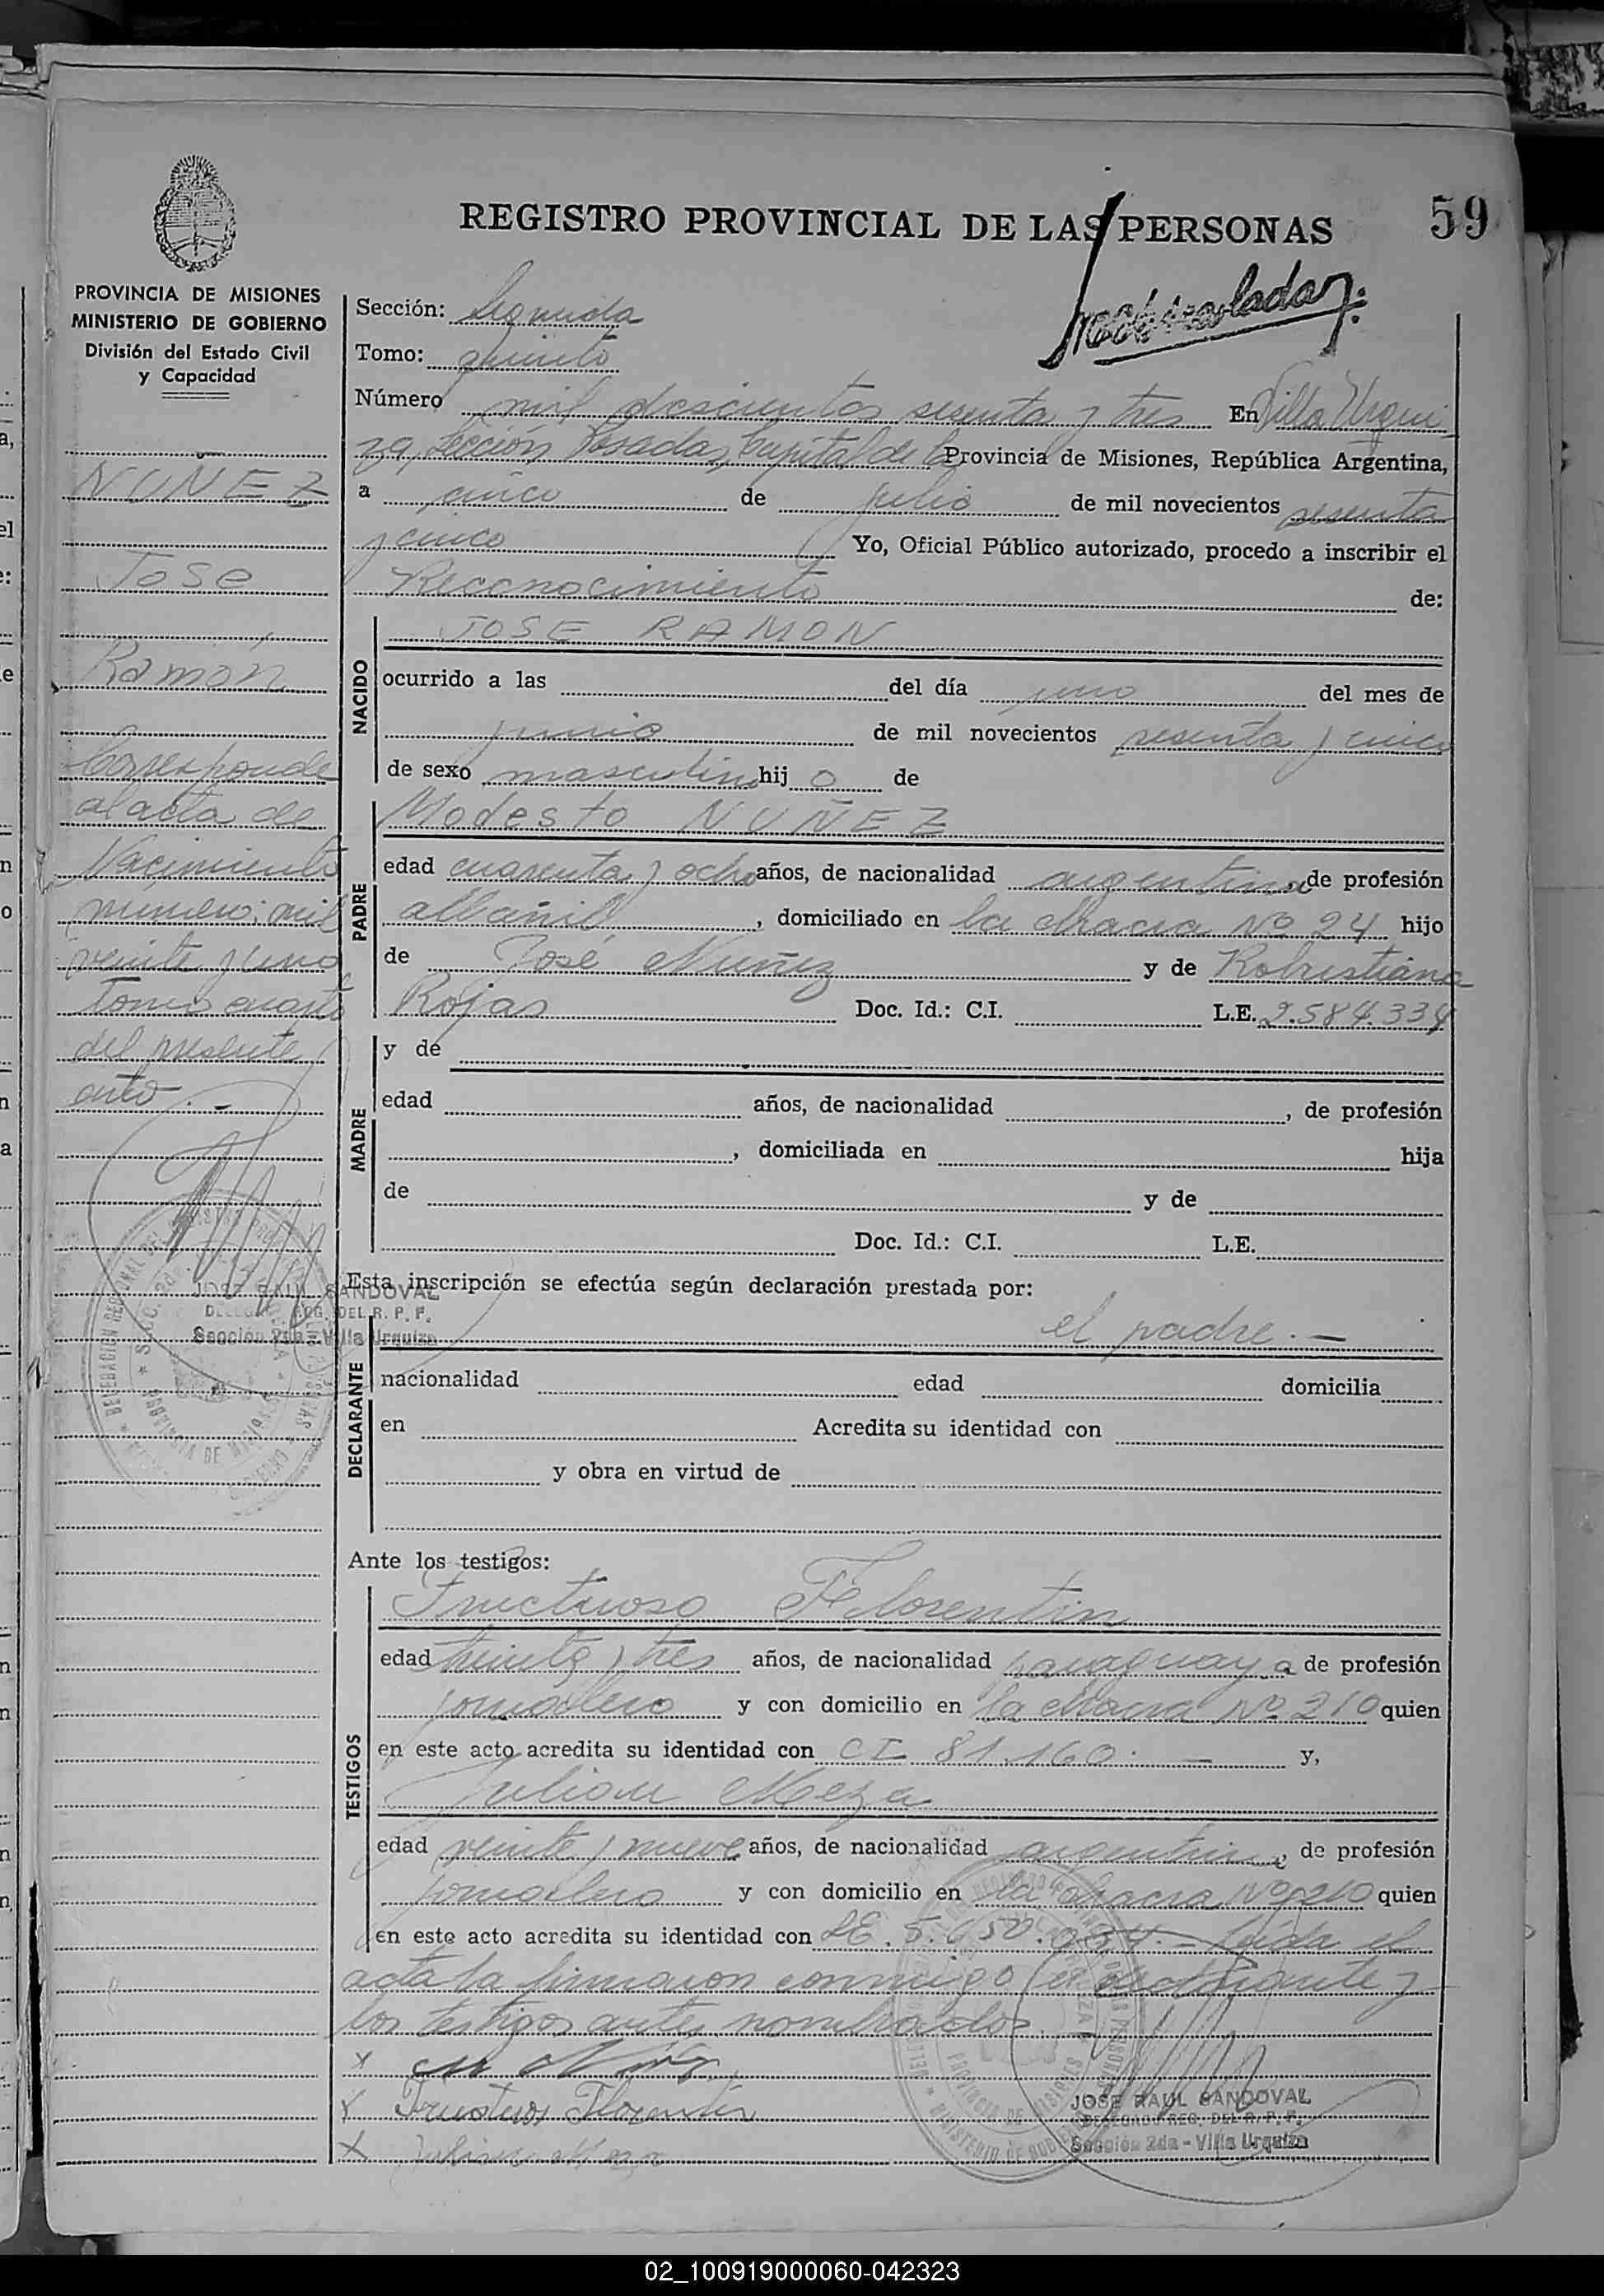 REGISTRO PROVINCIAL DE LAS PERSONAS
59
PROVINCIA DE MISIONES
MINISTERIO DE GOBIERNO
División del Estado Civil
y Capacidad
NUÑEZ
José
Ramón
Corresponde
al acta de
Nacimiento
número: mil
veinte y uno
tomo cuarto
del presente
año. -
JOSE RAUL SANDOVAL
DELEGADO REG. DEL R. P. P.
Sección 2da - Villa Urquiza
Sección: Segunda
Tomo: quinto
Número mil doscientos sesenta y tres En Villa Urqui-
za, Sección Posadas, Capital de la Provincia de Misiones, República Argentina,
a cinco de julio de mil novecientos sesenta
y cinco Yo, Oficial Público autorizado, procedo a inscribir el
Reconocimiento de:
NACIDO
JOSE RAMON
ocurrido a las del día uno del mes de
junio de mil novecientos sesenta y cinco
de sexo masculino hijo de
PADRE
Modesto NUÑEZ
edad cuarenta y ocho años, de nacionalidad argentina, de profesión
albañil, domiciliado en la chacra Nº 24 hijo
de José Nuñez y de Robustiana
Rojas Doc. Id.: C.I. L.E. 2.584.334
MADRE
y de
edad años, de nacionalidad , de profesión
, domiciliada en hija
de y de
Doc. Id.: C.I. L.E.
Esta inscripción se efectúa según declaración prestada por:
DECLARANTE
el padre. —
nacionalidad edad domicilia
en Acredita su identidad con
y obra en virtud de
Ante los testigos:
TESTIGOS
Fructuoso Florentin
edad treinta y tres años, de nacionalidad paraguaya de profesión
jornalero y con domicilio en la chacra Nº 210 quien
en este acto acredita su identidad con CI 81.160. — y,
Julian Meza
edad veinte y nueve años, de nacionalidad argentina, de profesión
jornalero y con domicilio en la chacra Nº 210 quien
en este acto acredita su identidad con LE. 5.650.934. - Leída el
acta la firmaron conmigo el declarante y
los testigos antes nombrados.
x
x Fructuoso Florentin
x Julian Meza
JOSE RAUL SANDOVAL
DELEGADO REG. DEL R. P. P.
Sección 2da - Villa Urquiza
02_100919000060-042323